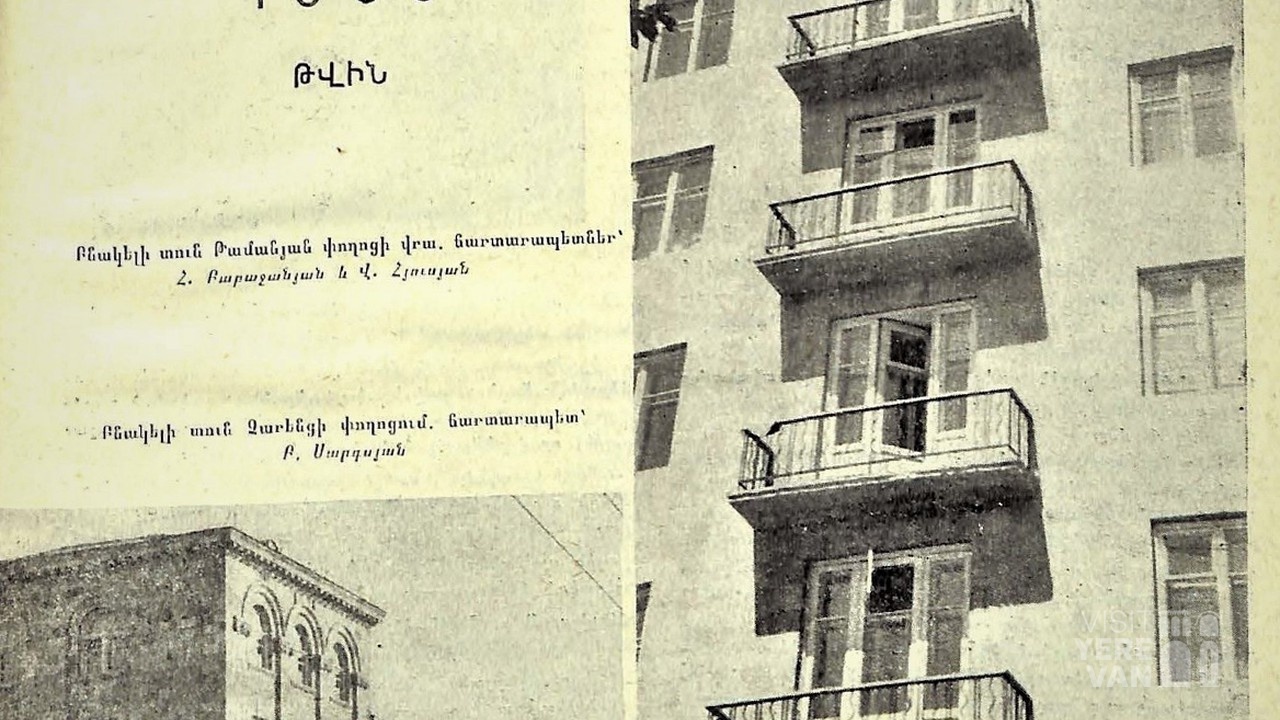 ԹՎԻՆ
Բնակելի տուն Թամանյան փողոցի վրա. ճարտարապետներ՝
Հ. Բաբաջանյան և Վ. Հյուսյան
Բնակելի տուն Չարենցի փողոցում. ճարտարապետ՝
Բ. Սարգսյան
VISIT
YERE
VAN